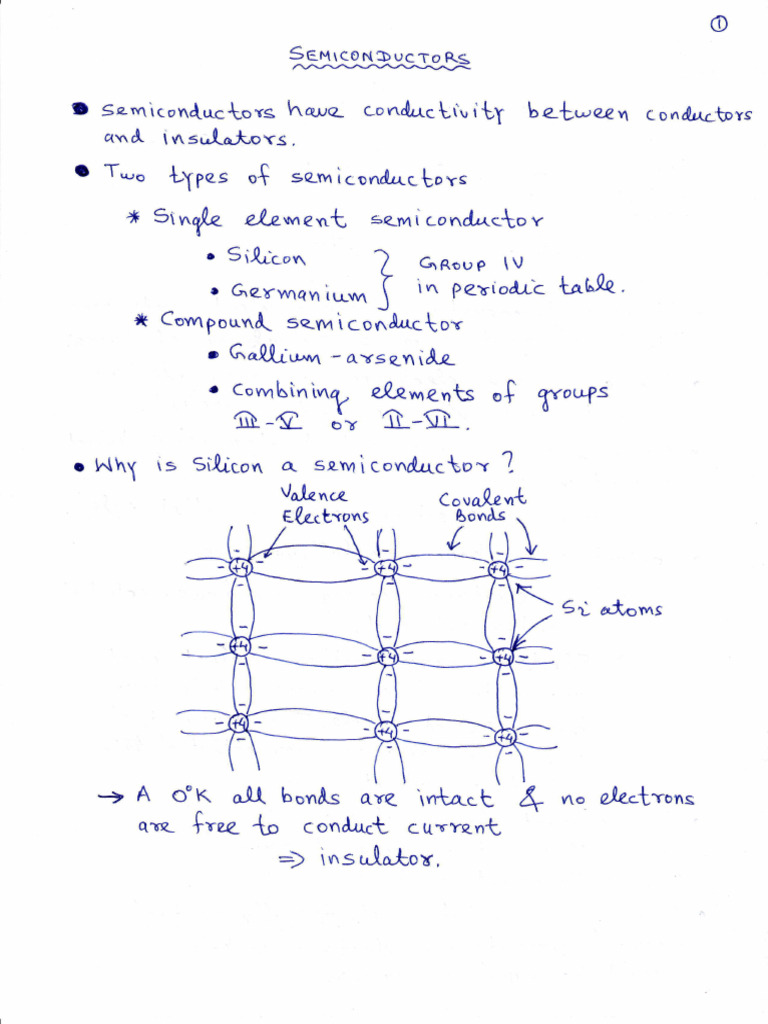 ①
SEMICONDUCTORS
• Semiconductors have conductivity between conductors
and insulators.
• Two types of semiconductors
* Single element semiconductor
• Silicon } GROUP IV
• Germanium } in periodic table.
* Compound semiconductor
• Gallium-arsenide
• Combining elements of groups
III-V or II-VI.
• Why is Silicon a semiconductor?
Valence Covalent
Electrons Bonds
- - -
+4 - - +4 - - +4 -
- - -
Si atoms
- - -
- +4 - - +4 - - +4 -
- - -
- - -
- +4 - - +4 - - +4 -
- - -
→ A 0°K all bonds are intact & no electrons
are free to conduct current
⇒ insulator.